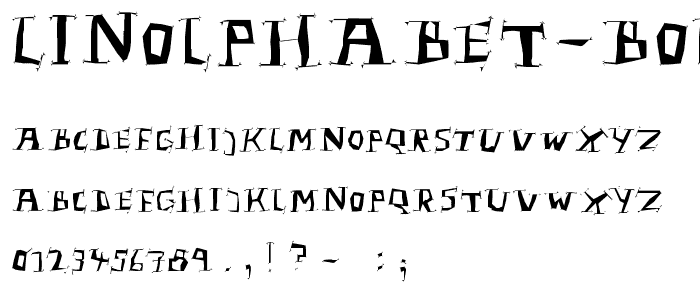 LINOLPHABET-BO
ABCDEFGHIJKLMNOPQRSTUVWXYZ
ABCDEFGHIJKLMNOPQRSTUVWXYZ
0123456789.,!?- :;